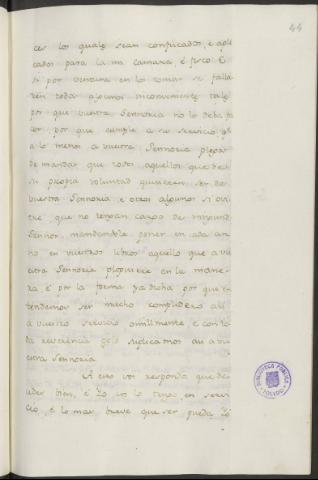 44
ces los quales sean confiscados, e apli
cados para la mi camara, e fisco E
si por ventura en lo tomar se falla
ren todas algunos inconvenientes tales
por que vuestra Señoria no lo deba fa
cer, por que cumple a su servicio
a lo menos a vuestra Señoria plega
de mandar que todos aquellos que de
su propia voluntad quisieren ser de
vuestra Señoria, e otros algunos si ovi
ere, que no tengan cargo de ningund
Señor, mandandole poner en cada an
no en vuestros libros aquello que a vu
estra Señoria ploguiere en la mane
ra, e por la forma ya dicha por que en
tendemos ser mucho complidero a
a vuestro servicio omillmente e con to
da reverencia gelo suplicamos a vu
estra Señoria
A esto vos respondo que de
cides bien, e Yo vos lo tengo en servi
cio, e lo mas breve que ser pueda Yo
BIBLIOTECA PUBLICA
TOLEDO